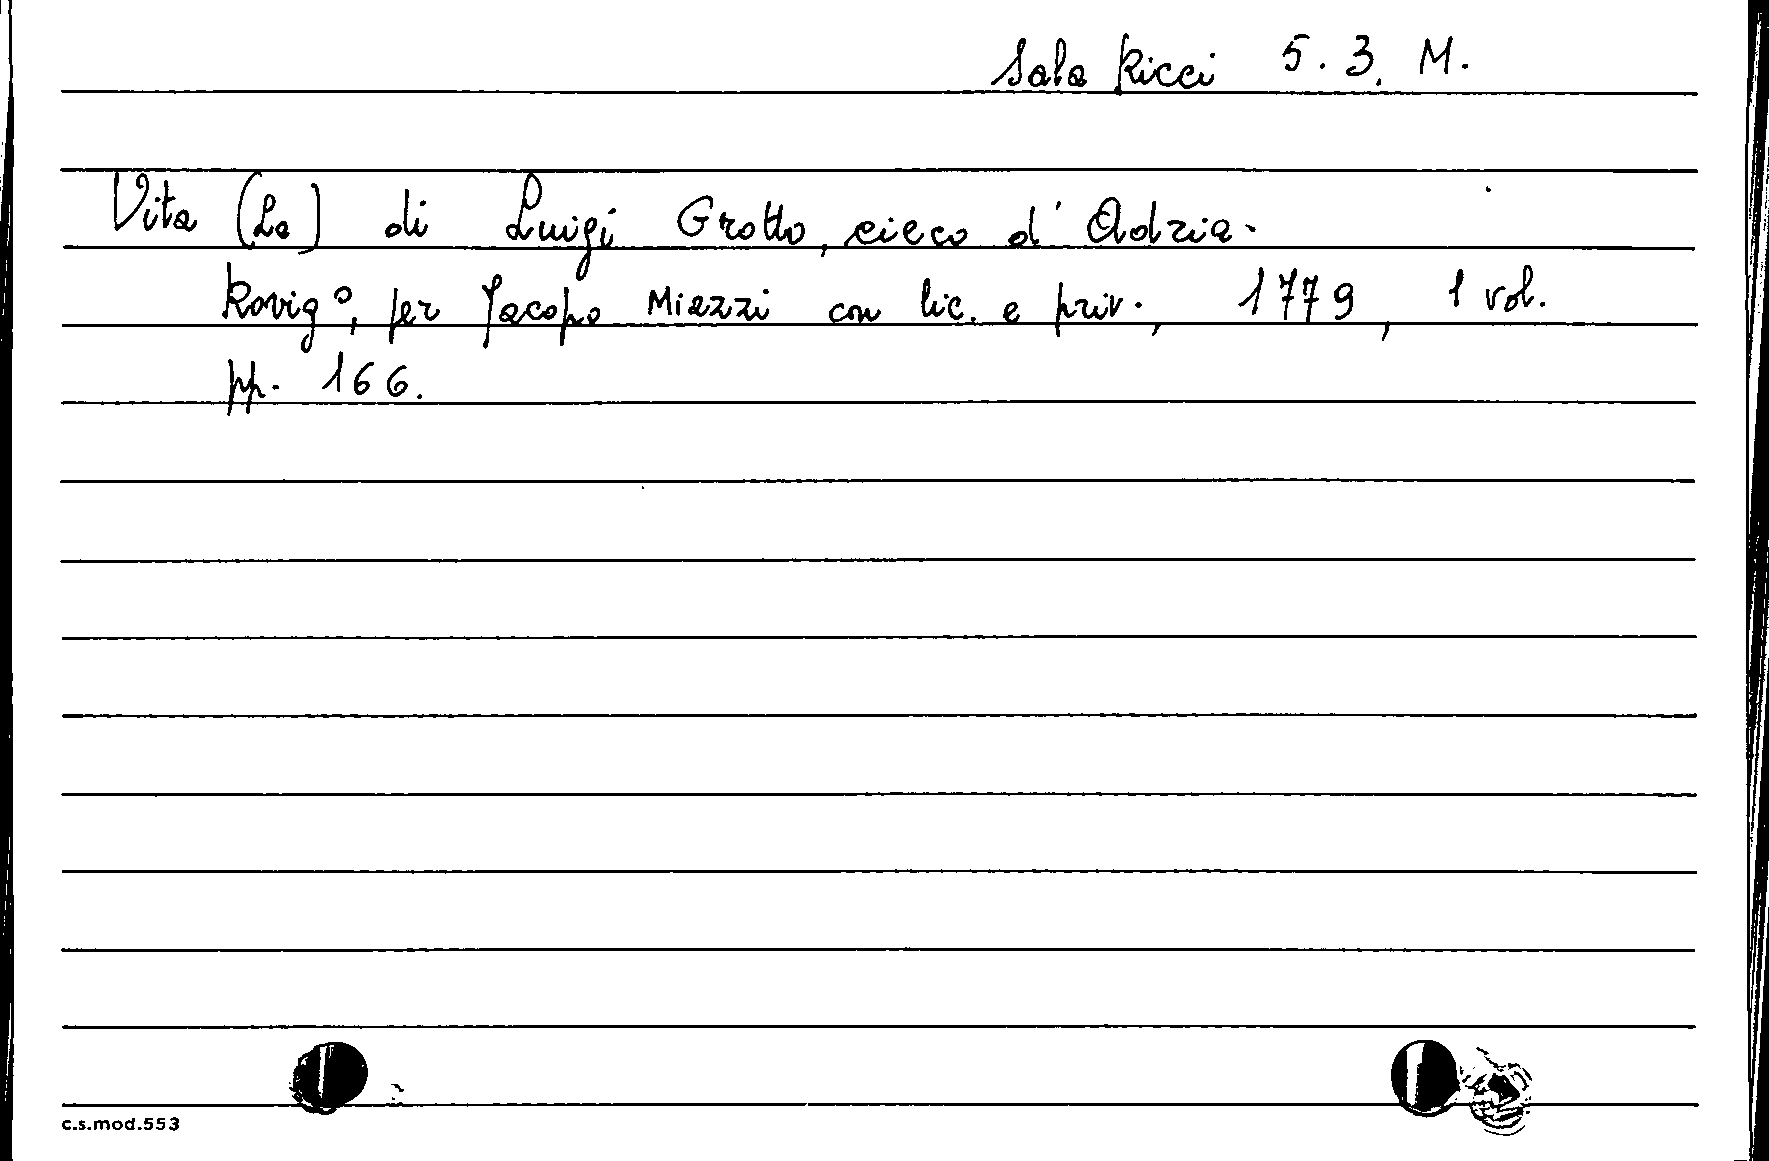 Sala Ricci 5.3.M.
Vita (La) di Luigi Grotto, cieco d'Adria.
Rovigº, per Jacopo Miazzi con lic. e priv., 1779, 1 vol.
pp. 166.
c.s.mod.553